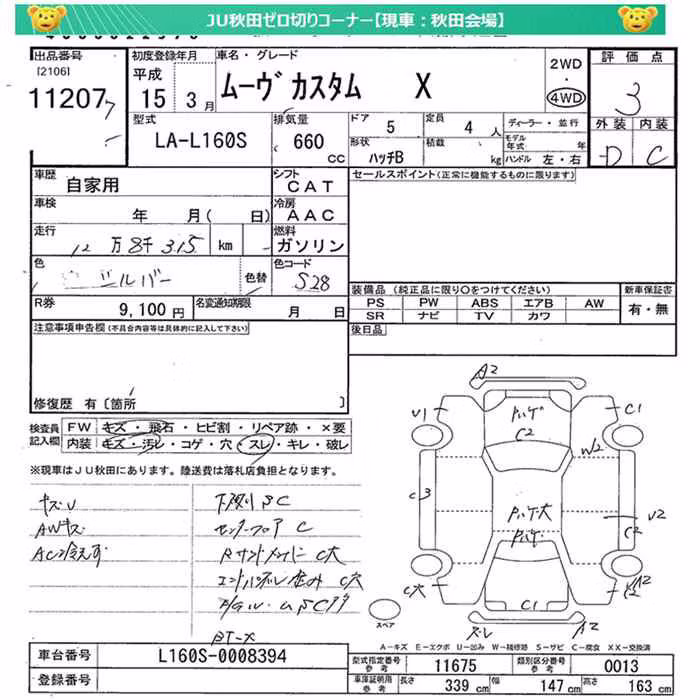 JU秋田ゼロ切りコーナー【現車：秋田会場】
出品番号 [2106] 11207
初度登録年月 平成 15年 3月
車名・グレード ムーヴカスタム X
2WD・4WD
評価点 3
外装 D 内装 C
型式 LA-L160S
排気量 660 CC
ドア 5 定員 4人
形状 ハッチB 積載 kg
ディーラー・並行
モデル年式 年
ハンドル 左・右
車歴 自家用
シフト CAT
セールスポイント(正常に機能するものに限ります)
車検 年 月( 日)
冷房 AAC
走行 12万8千315 km
燃料 ガソリン
色 シルバー 色替
色コード S28
R券 9,100円
名変通知期限 月 日
装備品 (純正品に限り〇をつけてください)
新車保証書 有・無
PS PW ABS エアB AW
SR ナビ TV カワ
注意事項申告欄(不具合内容等は具体的に記入して下さい)
後日品
修復歴 有〔箇所 〕
検査員記入欄
FW キズ・飛石・ヒビ割・リペア跡・×要
内装 キズ・汚レ・コゲ・穴・スレ・キレ・破レ
※現車はJU秋田にあります。陸送費は落札店負担となります。
キズU
AWキズ
AC冷えず
下廻りSC
センターフロアC
RサイドメンバーC穴
A2
U1
C1
C2
W2
C3
U2
C2
C穴
A2
C1
スレ
A2
スペア
A－キズ E－エクボ U－凹み W－補修跡 S－サビ C－腐食 XX－交換済
車台番号 L160S-0008394
登録番号
型式指定番号 参考 11675
類別区分番号 参考 0013
車庫証明用 参考 長さ 339cm 幅 147cm 高さ 163cm